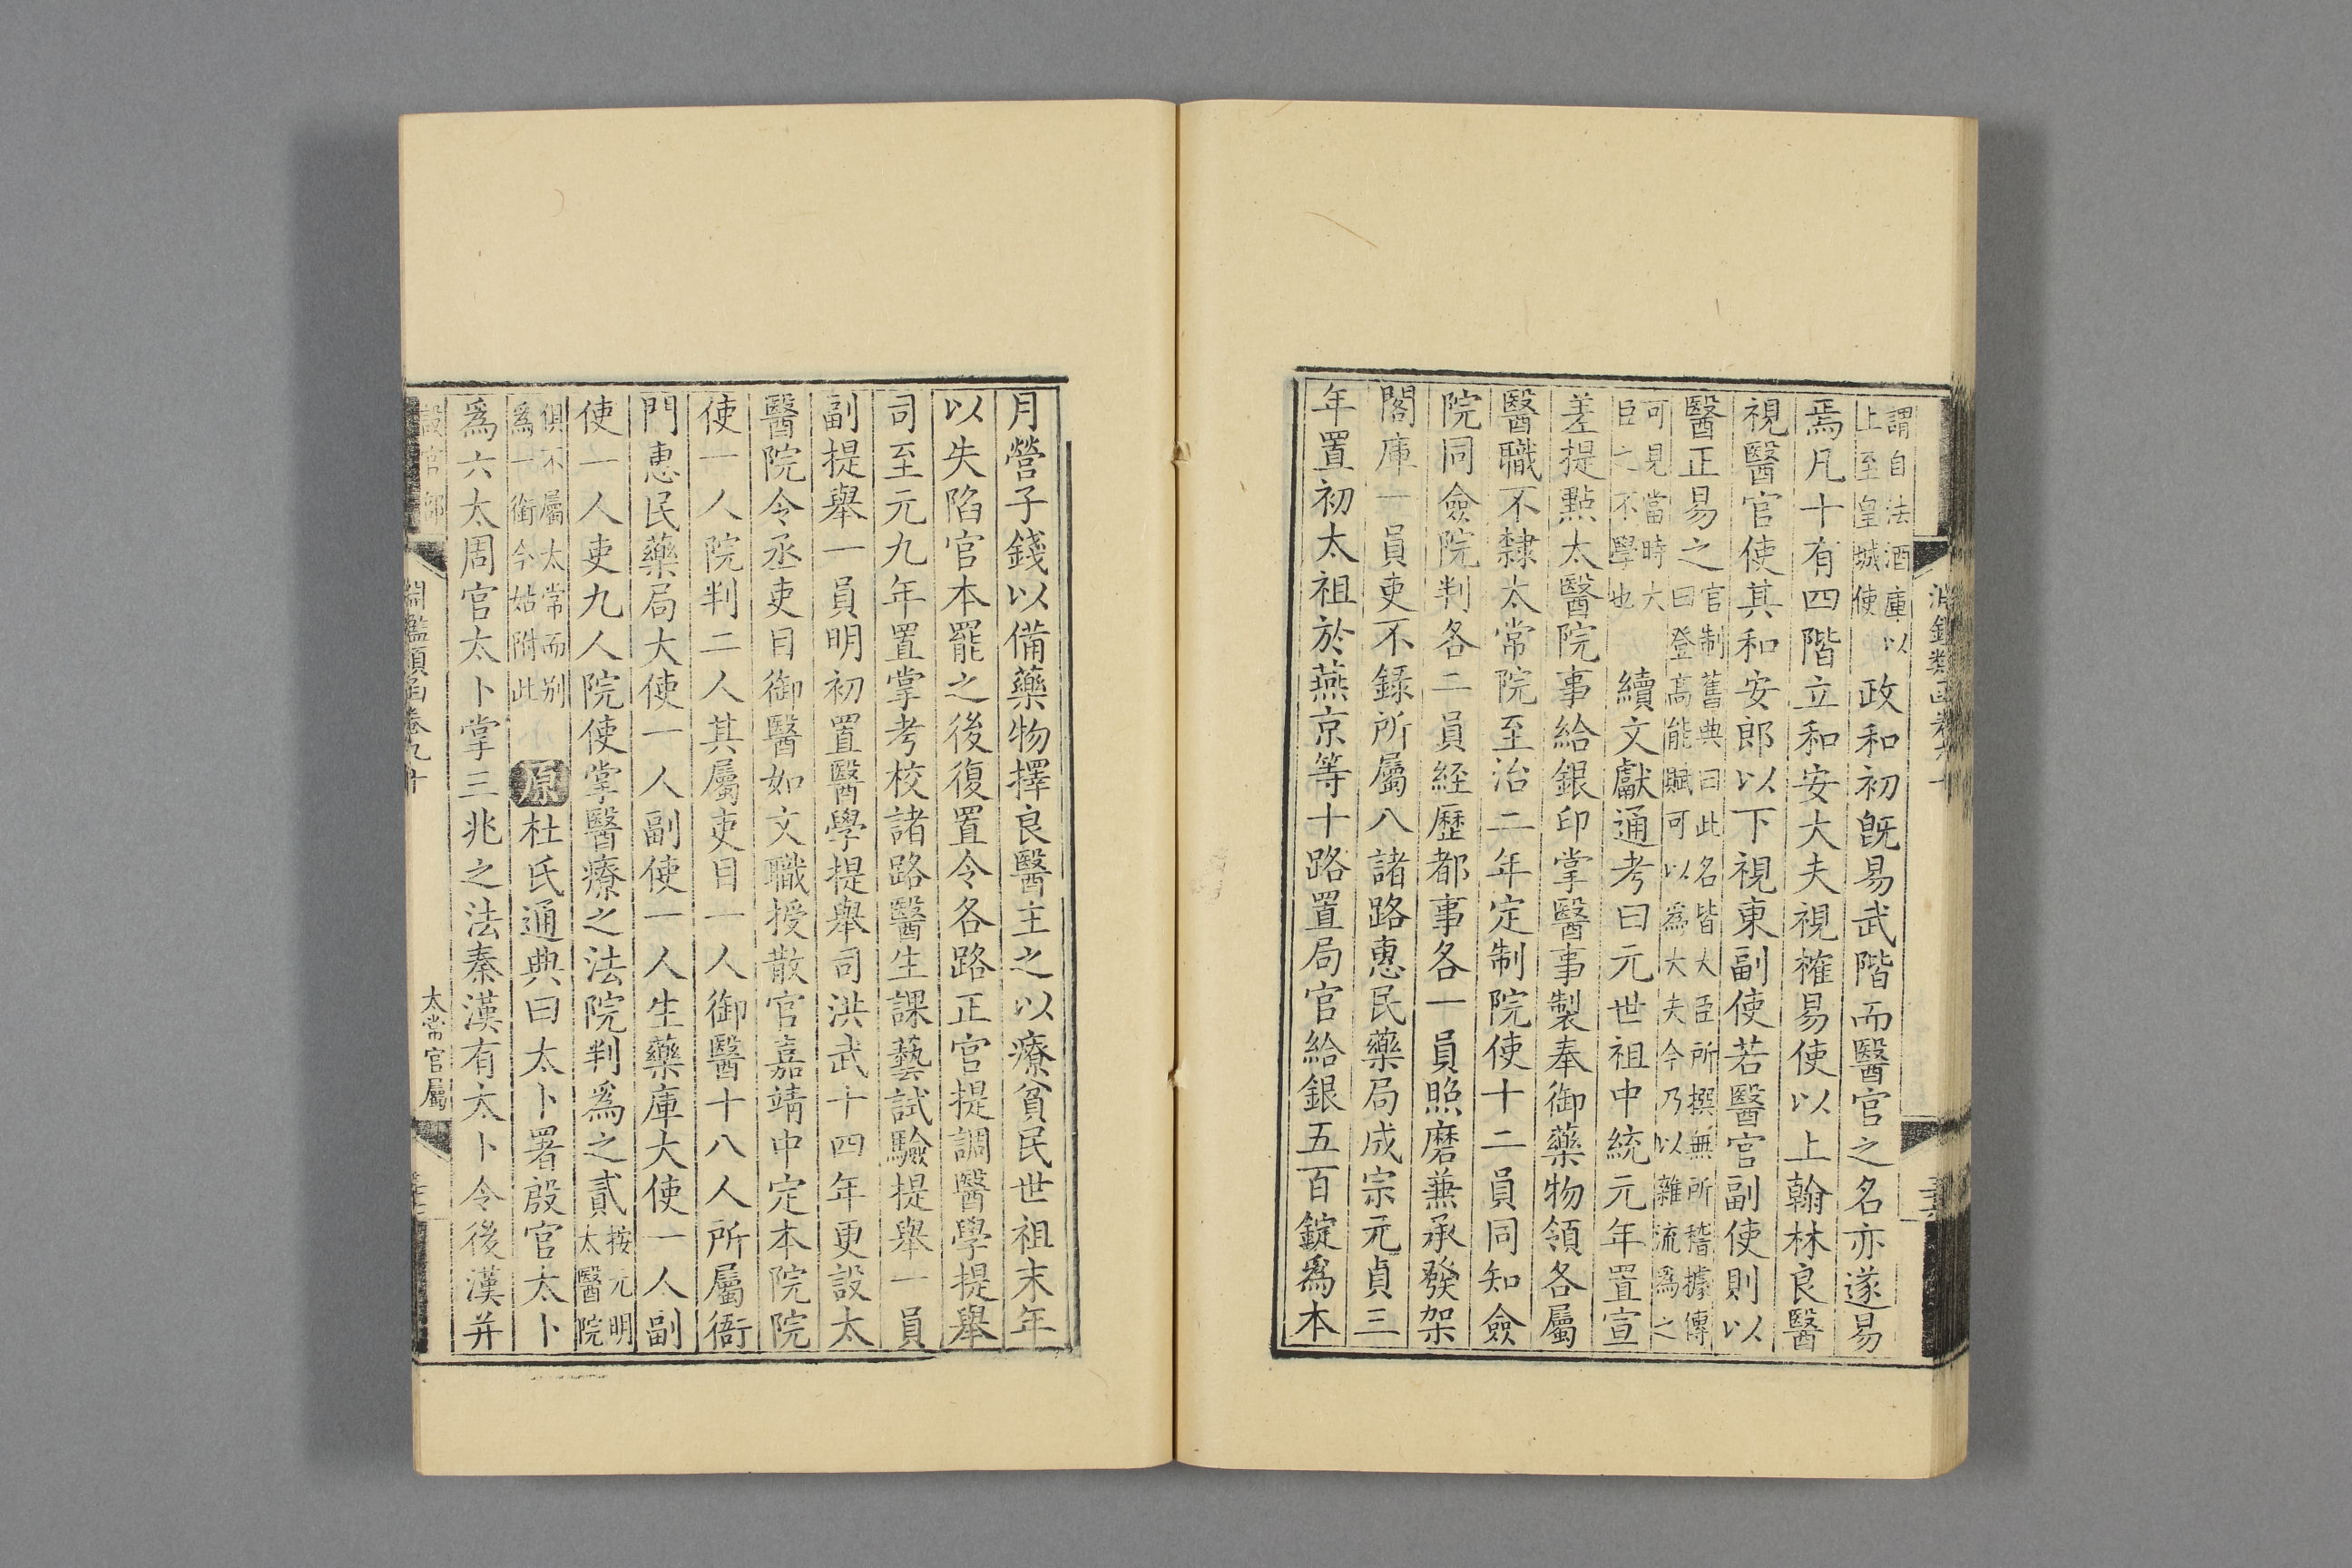 謂自法酒庫以
上至皇城使
政和初旣易武階而醫官之名亦遂易
焉凡十有四階立和安大夫視榷易使以上翰林良醫
視醫官使其和安郎以下視東副使若醫官副使則以
醫正易之
官制舊典曰此名皆大臣所撰無所稽據傳
曰登高能賦可以為大夫今乃以雜流爲之
可見當時大
臣之不學也
續文獻通考曰元世祖中統元年置宣
差提點太醫院事給銀印掌醫事製奉御藥物領各屬
醫職不隸太常院至治二年定制院使十二員同知僉
院同僉院判各二員経歷都事各一員照磨兼承發架
閣庫一員吏不錄所屬八諸路惠民藥局成宗元貞三
年置初太祖於燕京等十路置局官給銀五百錠爲本
月營子錢以備藥物擇良醫主之以療貧民世祖末年
以失陷官本罷之後復置令各路正官提調醫學提舉
司至元九年置掌考校諸路醫生課藝試驗提舉一員
副提舉一員明初置醫學提舉司洪武十四年更設太
醫院令丞吏目御醫如文職授散官嘉靖中定本院院
使一人院判二人其屬吏目一人御醫十八人所屬衙
門惠民藥局大使一人副使一人生藥庫大使一人副
使一人吏九人院使掌醫療之法院判爲之貳
按元明
太醫院
俱不屬太常而别
爲一衙今姑附此
原杜氏通典曰太卜署殷官太卜
爲六太周官太卜掌三兆之法秦漢有太卜令後漢并
設官部
淵鑑類函卷九十
太常官屬